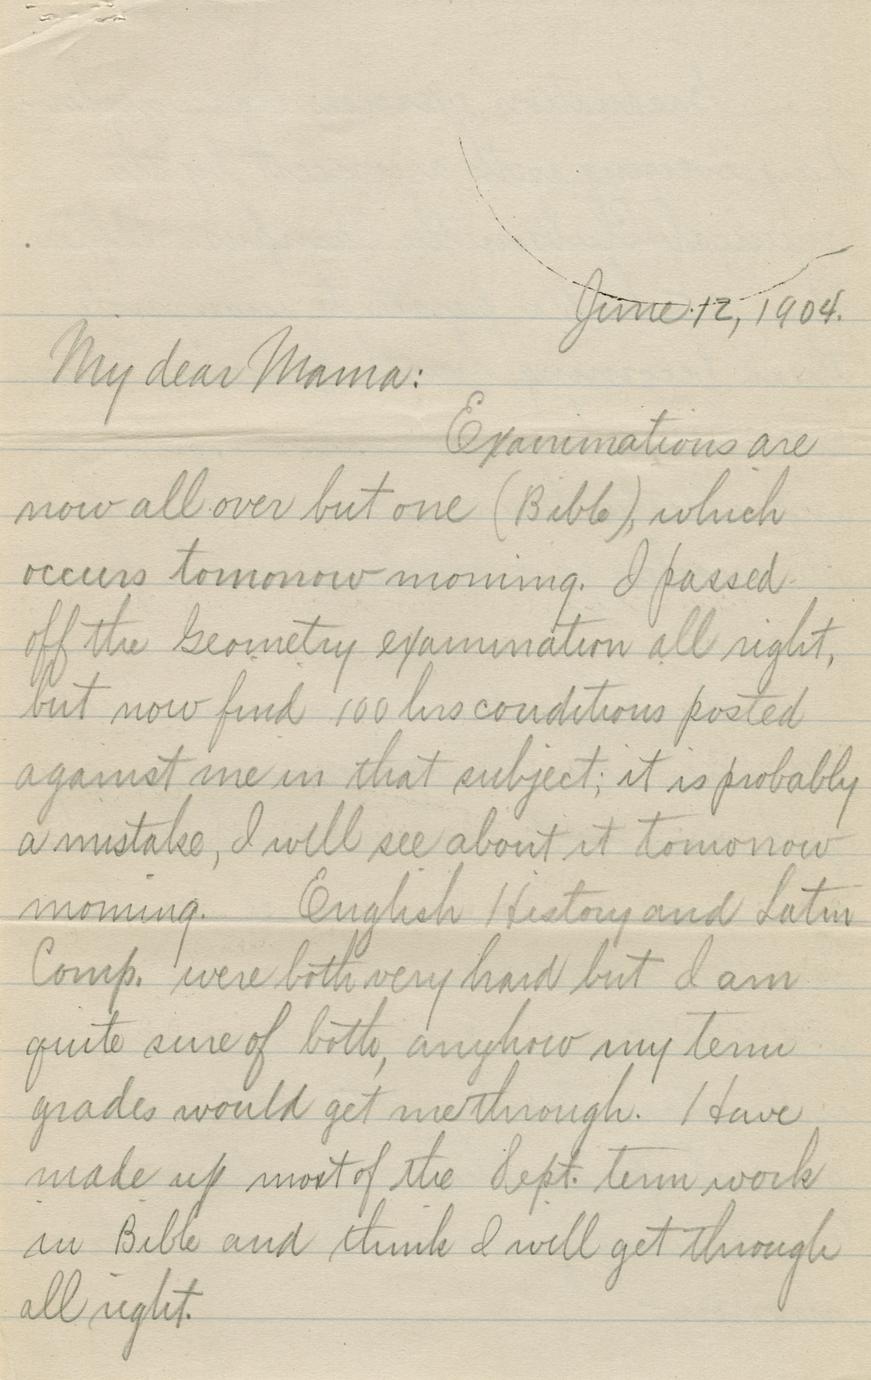 June 12, 1904.
My dear Mama:
Examinations are
now all over but one (Bible), which
occurs tomorrow morning. I passed
off the Geometry examination all right,
but now find 100 hrs conditions posted
against me in that subject; it is probably
a mistake, I will see about it tomorrow
morning. English History and Latin
Comp. were both very hard but I am
quite sure of both, anyhow my term
grades would get me through. Have
made up most of the Sept. term work
in Bible and think I will get through
all right.